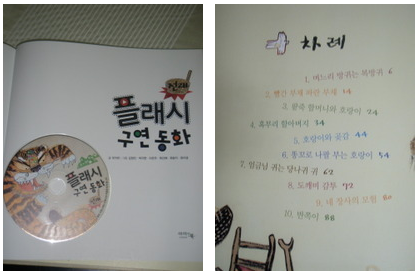 전래
플래시
구연동화
플래시
구연동화
차례
1. 며느리 방귀는 복방귀 6
2. 빨간 부채 파란 부채 14
3. 팥죽 할머니와 호랑이 24
4. 혹부리 할아버지 34
5. 호랑이와 곶감 44
6. 똥꼬로 나팔 부는 호랑이 54
7. 임금님 귀는 당나귀 귀 62
8. 도깨비 감투 72
9. 내 항아의 모험 80
10. 반쪽이 88